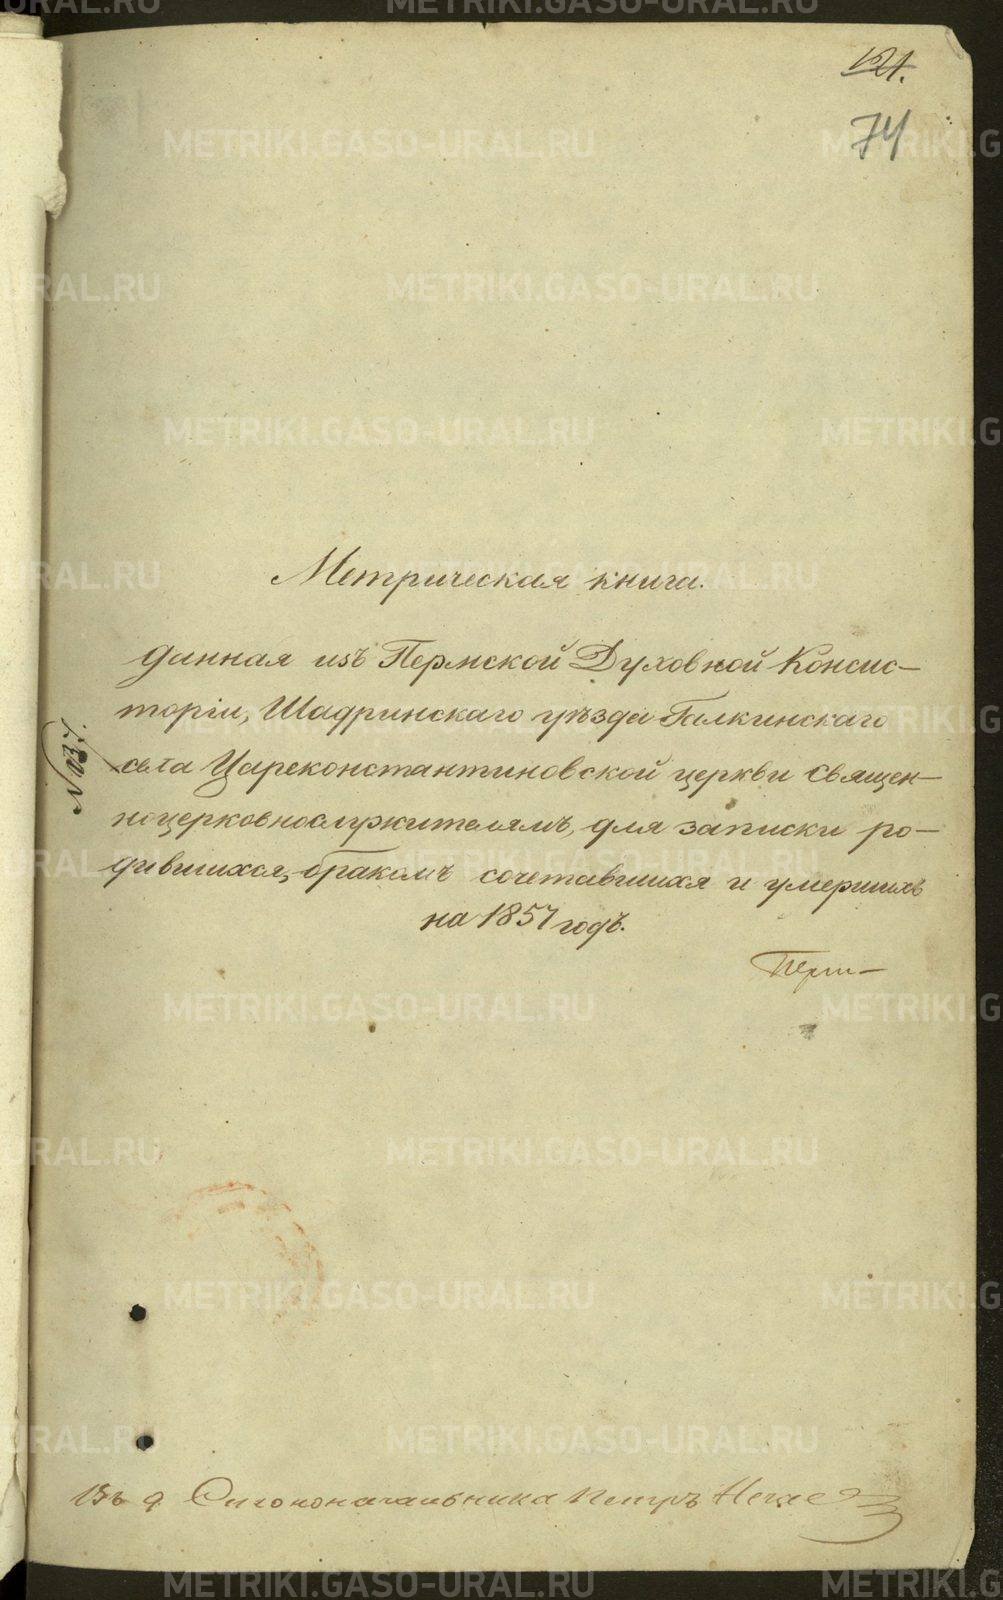 121.
74
Метрическая книга.
данная изъ Пермской Духовной Консис-
торіи, Шадринскаго уѣзда Галкинскаго
села Цареконстантиновской церкви священ-
ноцерковнослужителямъ, для записки ро-
дившихся, бракомъ сочетавшихся и умершихъ
на 1857 годъ.
Перм-
Въ д. Столоначальника Петръ
METRIKI.GASO-URAL.RU